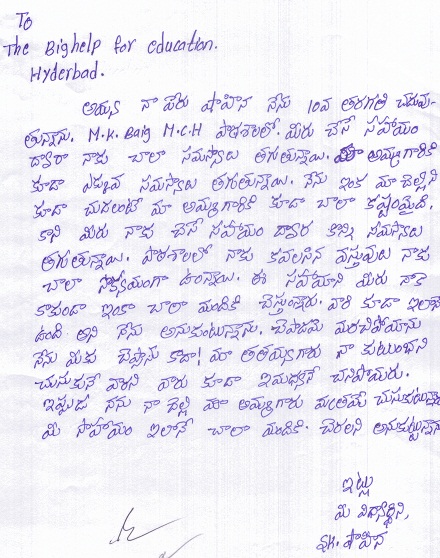 To
The Bighelp for education.
Hyderbad.
అయ్యా నా పేరు షాహిన నేను 10వ తరగతి చదువు-
తున్నాను. M.K. Baig M.C.H పాఠశాలలో. మీరు చేసే సహాయం
ద్వారా నాకు చాలా సమస్యలు తగుతున్నాయి. మా అమ్మగారికి
కూడా ఎక్కువ సమస్యలు తగుతున్నాయి. నేను ఇంక మా చెల్లిని
కూడా చదలంటే మా అమ్మగారికి కూడా చాలా కష్టంమైది.
కాని మిరు నాకు చేసే సహాయం ద్వార కొన్ని సమస్యలు
తగుతున్నాయి. పాఠశాలలో నాకు కవలసిన వస్తువులు నాకు
చాలా సౌక్యేయంగా ఉంన్నాయి. ఈ సహాయాని మిరు నాకె
కాకుండా ఇంకా చాలా మందికి చేస్తున్నారు. వారి కూడా ఇలానే
ఉండి అని నేను అనుకుంటున్నాను. చెపాడమె మరచిపోయాను
నేను మికు చెప్తాను కాదా! మా తతయ్యగారు నా కుటుంభని
చుసుకునే వారని వారు కూడా ఇమధ్యానే చనిపోయరు.
ఇప్పుడు నను నా చెల్లి మా అమ్మగారు మత్రమే చుసుకుంటున్నారు
మి సాహాయం ఇలానే చాలా మందికి చెరలని అనుకుట్టున్నాను
ఇట్లు
మి విద్యార్థిని,
SK. షాహిన